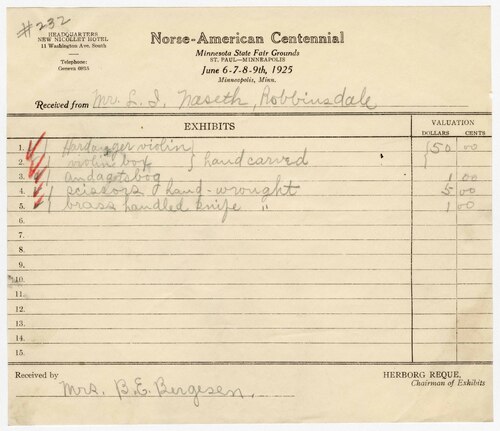 #232
HEADQUARTERS
NEW NICOLLET HOTEL
11 Washington Ave. South
Telephone:
Geneva 0835
Norse-American Centennial
Minnesota State Fair Grounds
ST. PAUL—MINNEAPOLIS
June 6-7-8-9th, 1925
Minneapolis, Minn.
Received from Mr. L. I. Naseth, Robbinsdale
EXHIBITS
VALUATION
DOLLARS CENTS
1. 1 Hardanger violin } 50 00
2. 1 violin box } hand carved
3. 1 andagtsbog 1 00
4. 1 scissors hand-wrought 5 00
5. 1 brass handled knife " 1 00
6.
7.
8.
9.
10.
11.
12.
13.
14.
15.
Received by Mrs. B. E. Bergesen.
HERBORG REQUE,
Chairman of Exhibits